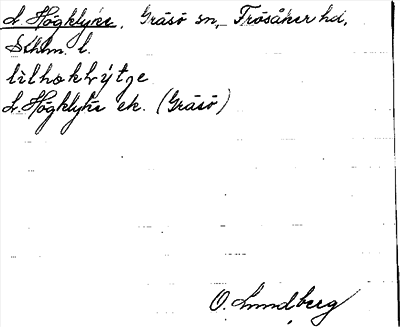 L. Högklyke, Gräsö sn, Frösåker hd,
Sthlm. l.
lilhøkklýtje
L. Högklyke ek. (Gräsö)
O. Lundberg